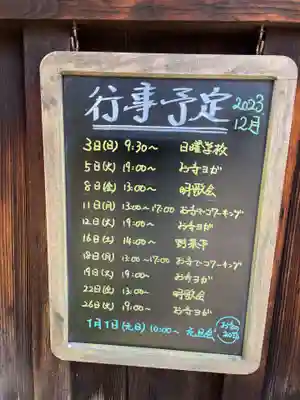 行事予定 2023 12月
3日(日) 9:30〜 日曜学校
5日(火) 19:00〜 お寺ヨガ
8日(金) 13:00〜 明歌会
11日(月) 13:00〜17:00 お寺でコワーキング
12日(火) 19:00〜 お寺ヨガ
16日(土) 14:00〜
18日(月) 13:00〜17:00 お寺でコワーキング
19日(火) 19:00〜 お寺ヨガ
22日(金) 13:00〜 明歌会
26日(火) 19:00〜 お寺ヨガ
1月1日(元日) 10:00〜 元旦会